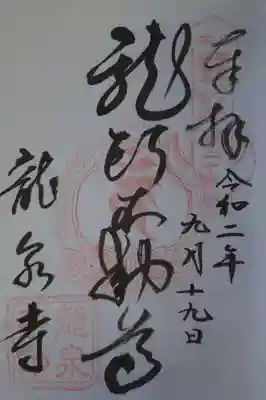 奉拝
令和二年
九月十九日
龍頭不動尊
龍泉寺
龍泉